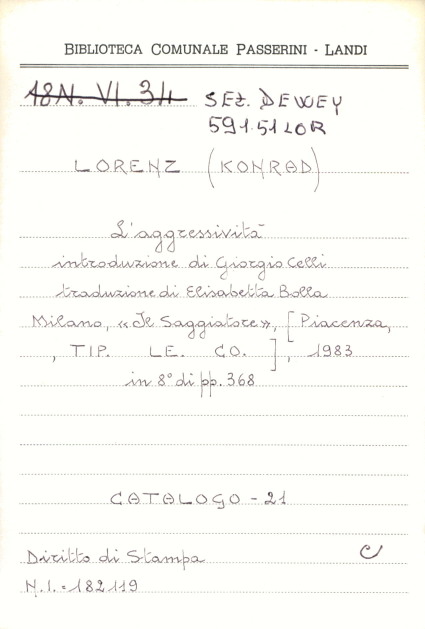 BIBLIOTECA COMUNALE PASSERINI - LANDI
18N. VI. 34 SEZ. DEWEY
591.51 LOR
LORENZ (KONRAD)
L'aggressività
introduzione di Giorgio Celli
traduzione di Elisabetta Bolla
Milano, «Il Saggiatore», [Piacenza,
, TIP. LE. CO.], 1983
in 8° di pp. 368
CATALOGO - 21
Diritto di Stampa C
N.I. = 182119